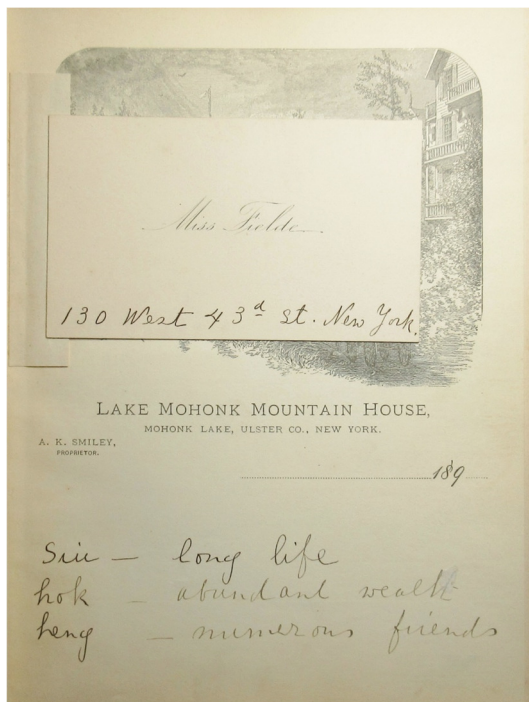 Miss Fielde
130 West 43d St. New York.
LAKE MOHONK MOUNTAIN HOUSE,
MOHONK LAKE, ULSTER CO., NEW YORK.
A. K. SMILEY,
PROPRIETOR.
189
Siu — long life
hok — abundant wealth
heng — numerous friends